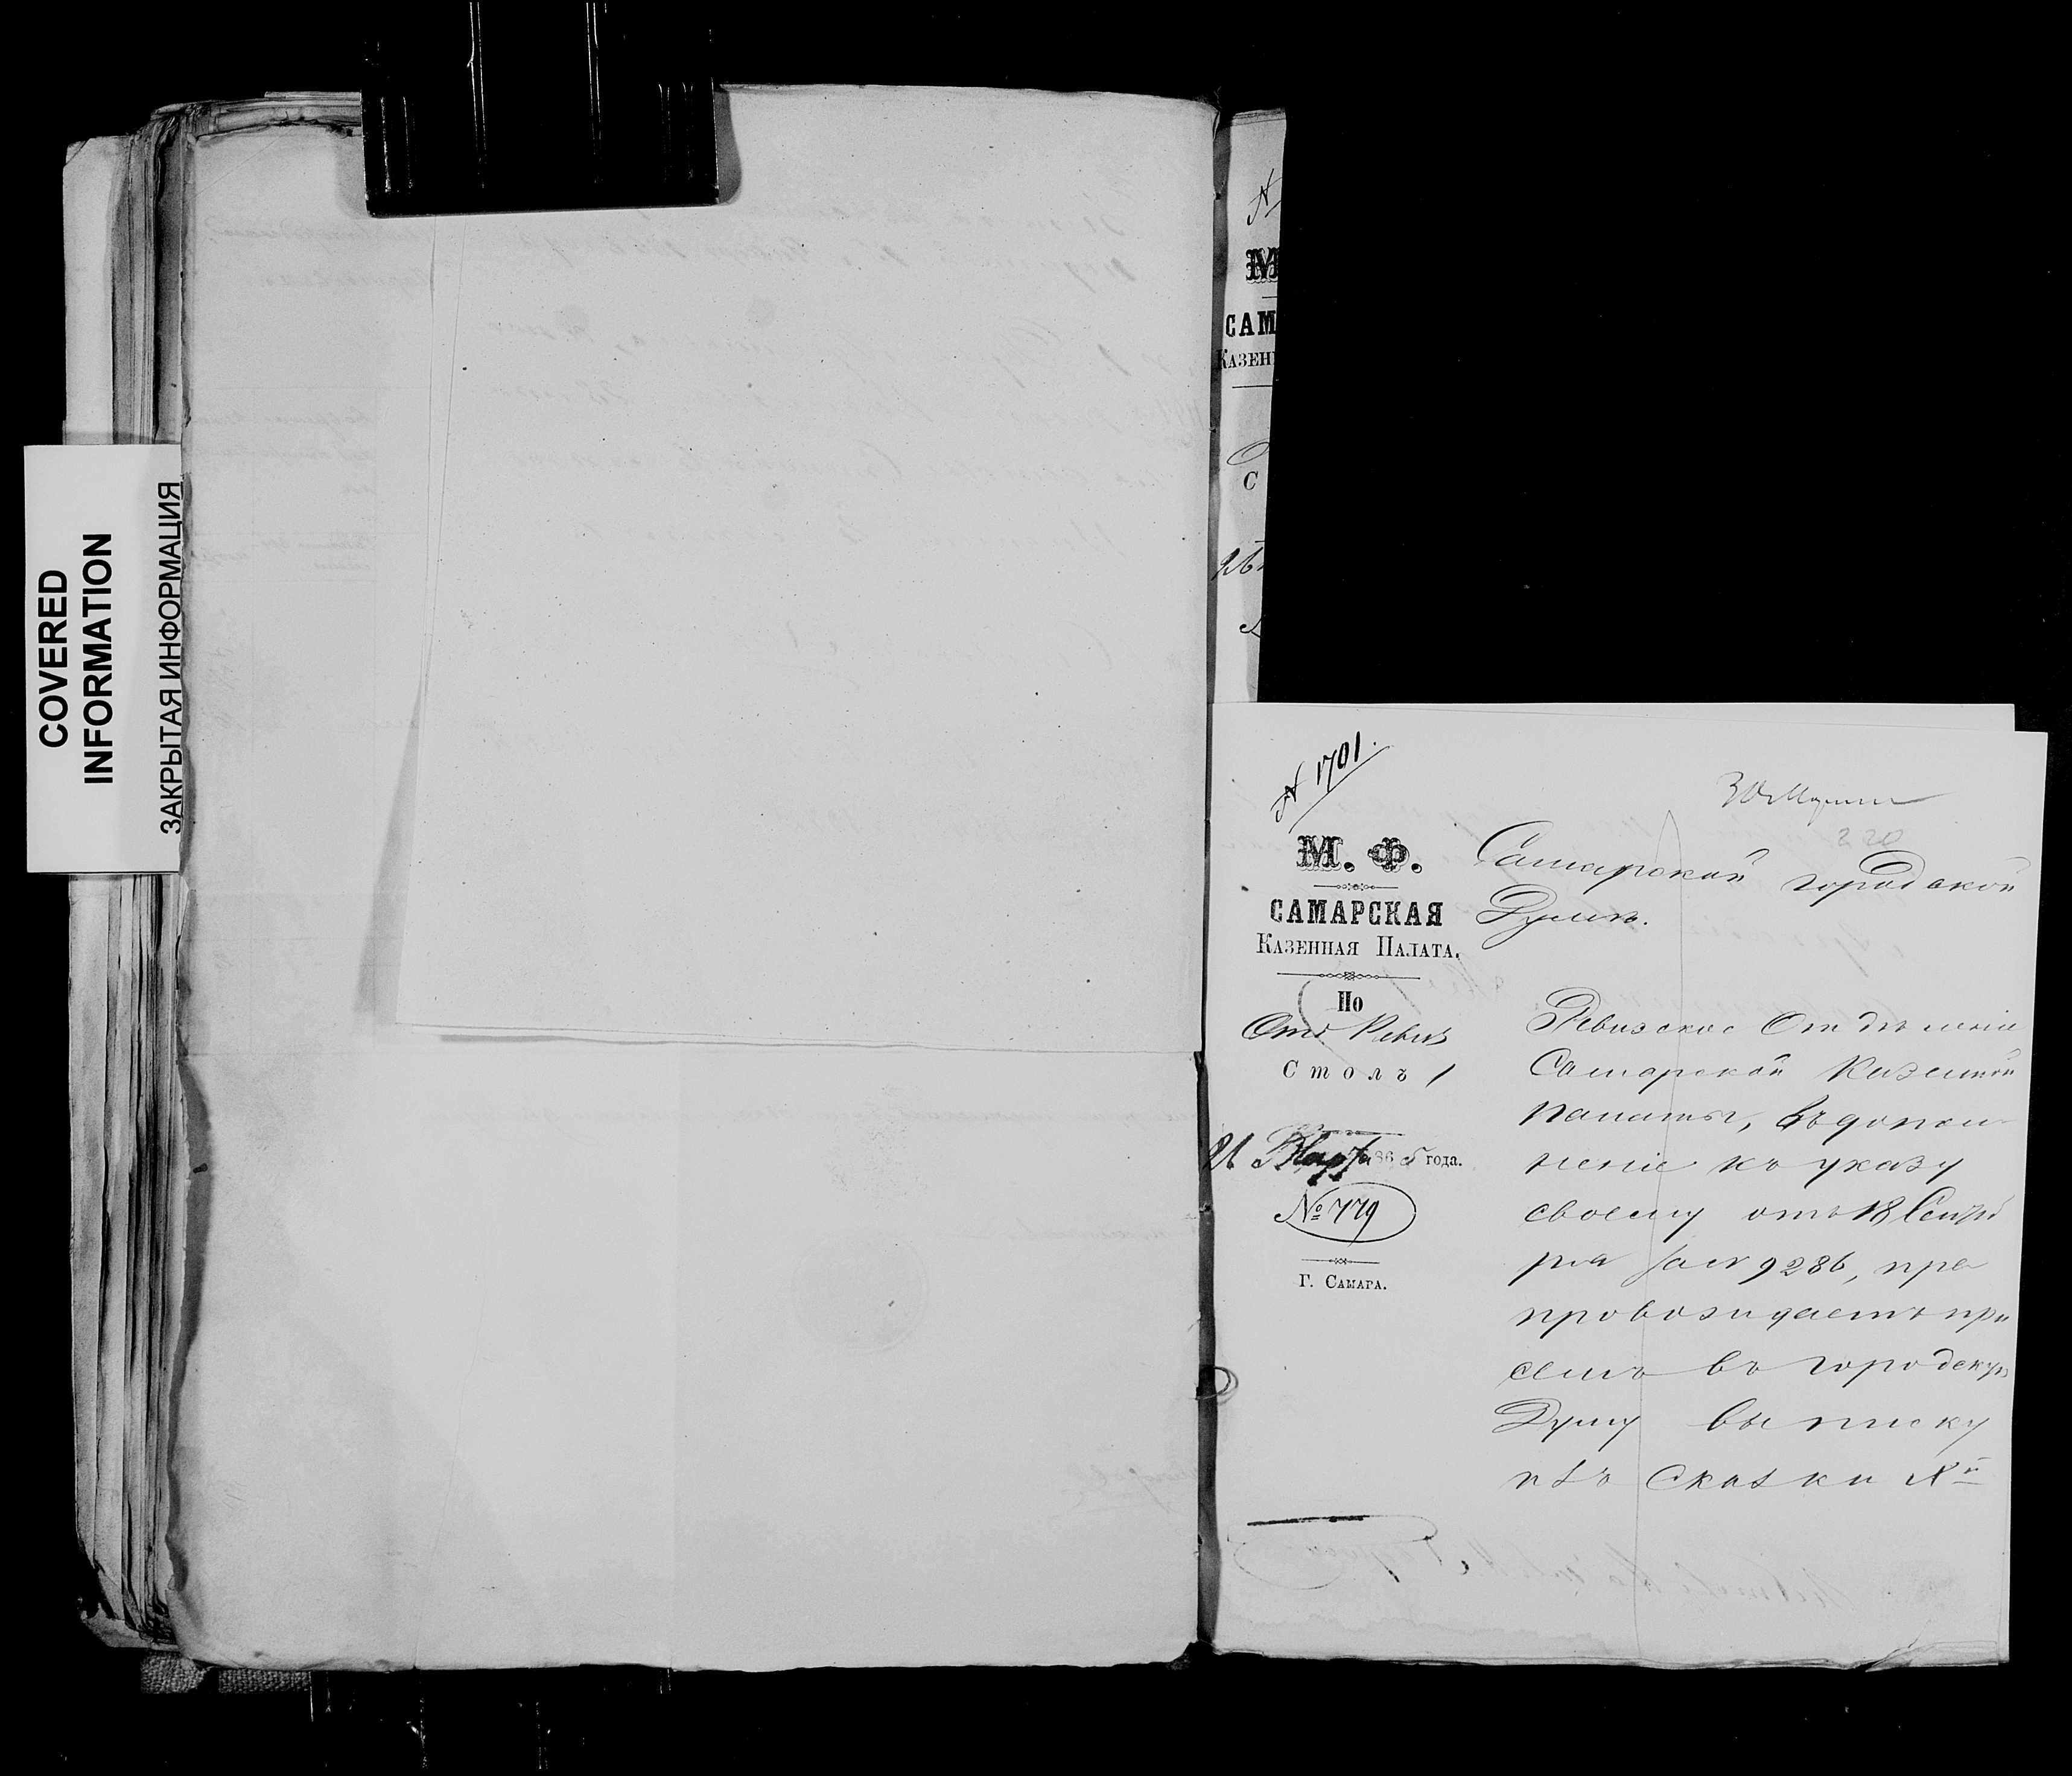 COVERED
INFORMATION
ЗАКРЫТАЯ ИНФОРМАЦИЯ
САМ
КАЗЕН
С
№ 1701.
30 Марта
220
М. Ф.
САМАРСКАЯ
КАЗЕННАЯ ПАЛАТА.
По
Отд Ревиз
Столъ 1
Марта 1865 года.
№ 779
Г. САМАРА.
Самарской городской
Думѣ.
Ревизское Отдѣленіе
Самарской Казенной
Палаты, въ допол
неніе къ указу
своему отъ 18 Сентя
бря за № 9286, пре
провождаетъ при
семъ въ городскую
Думу выписку
изъ сказки Хй